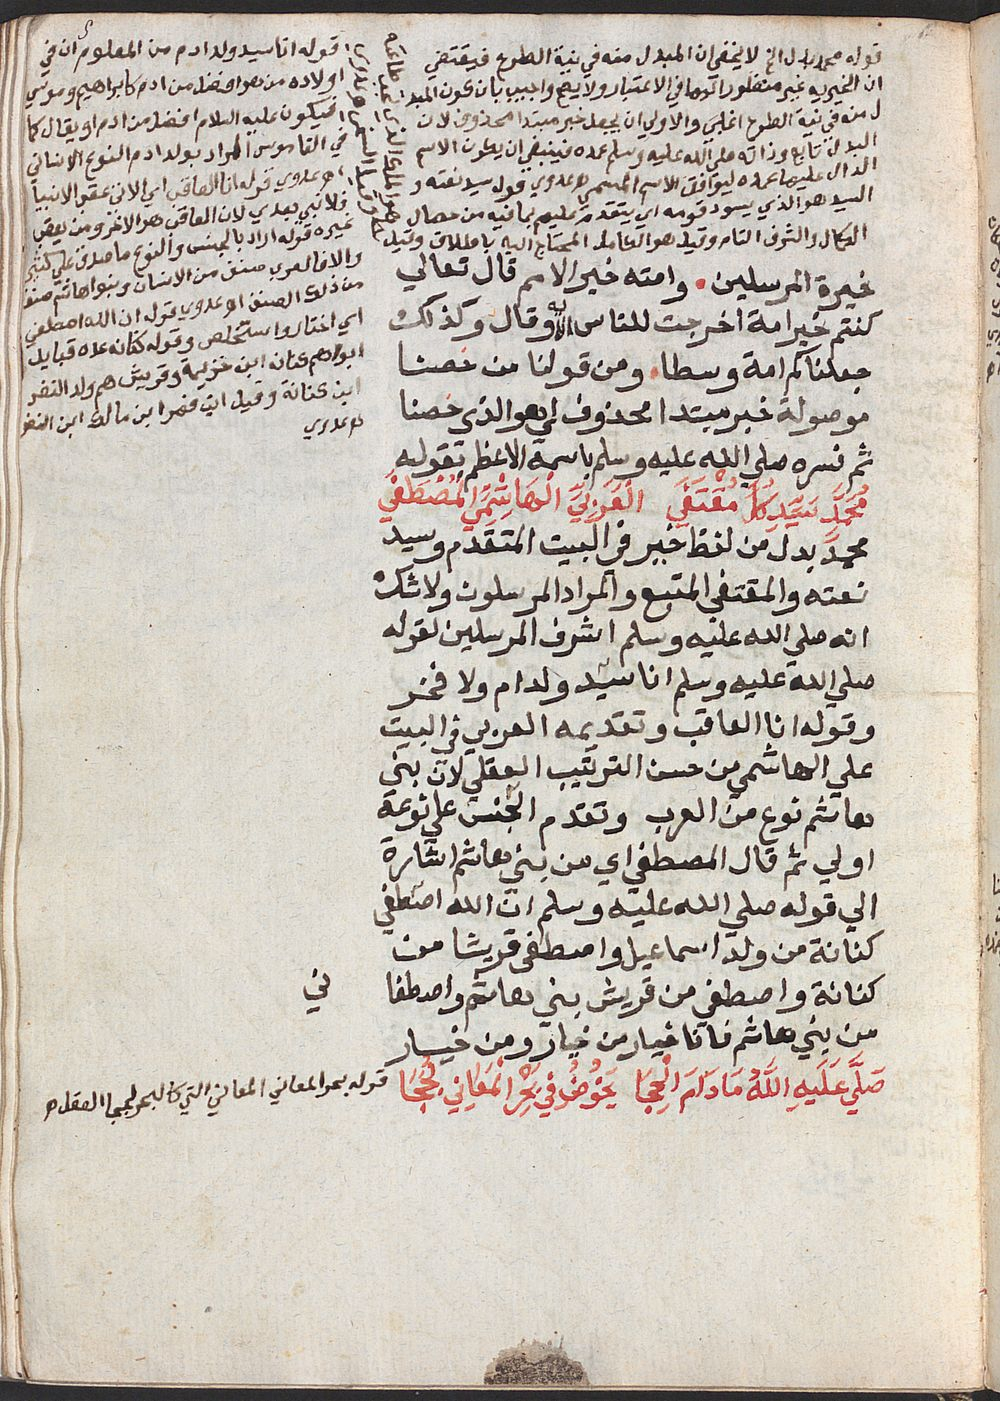 قوله محمد بدل الخ لا يخفى ان المبدل منه في نية الطرح فيقتضي
ان الخيرية غير منظور اليها في الاعتبار ولا يصح واجيب بان كون المبد
ل منه في نية الطرح اغلبي والاولي ان يجعل خبر مبتدا محذوف لان
البدل تابع وذاته صلي الله عليه وسلم عمده فينبغي ان يكون الاسم
الدال عليها عمده ليوافق الاسم المسمي اه عدوي قوله سيد نعته و
السيد هو الذي يسود قومه اي يتقدم عليهم بما فيه من خصال
الكمال والشرف التام وقيل هو الكامل المحتاج اليه باطلاق وقيل
خيرة المرسلين وامته خير الامم قال تعالي
كنتم خير امة اخرجت للناس الايه وقال وكذلك
جعلناكم امة وسطا ومن قولنا من خصنا
موصولة خبر مبتدا محذوف اي هو الذي خصنا
ثم فسره صلي الله عليه وسلم باسمه الاعظم بقوله
مُحَمَّدٍ سَيِّدِ كُلِّ مُقْتَفَي الْعَرَبِيِّ الْهَاشِمِيِّ الْمُصْطَفَي
محمد بدل من لفظ خير في البيت المتقدم وسيد
نعته والمقتفي المتبع والمراد المرسلون ولا شك
انه صلي الله عليه وسلم اشرف المرسلين لقوله
صلي الله عليه وسلم انا سيد ولد ادم ولا فخر
وقوله انا العاقب وتقديمه العربي في البيت
علي الهاشمي من حسن الترتيب العقلي لان بني
هاشم نوع من العرب وتقدم الجنس علي نوعه
اولي ثم قال المصطفي اي من بني هاشم اشارة
الي قوله صلي الله عليه وسلم ان الله اصطفي
كنانة من ولد اسماعيل واصطفي قريشا من
كنانة واصطفي من قريش بني هاشم واصطفا
ني
من بني هاشم فانا خيار من خيار ومن خيار
صَلَّي عَلَيهِ اللَّهُ مَا دَامَ الْحِجَا يَخُوضُ في بَحْرِ الْمَعَاني لُجَجَا
قوله بحر المعاني المعاني التي كالبحر لججا العقل اه
قوله انا سيد ولد ادم من المعلوم ان في
اولاده من هو افضل من ادم كابراهيم وموسي
فيكون عليه السلام افضل من ادم او يقال كما
في القاموس المراد بولد ادم النوع الانساني
اه عدوي قوله انا العاقب اي الاتي عقب الانبيا
فلا نبي بعدي لان العاقب هو الاخر ومن يعقب
غيره قوله اراد بالجنس والنوع ما صدق علي كثير
والا فالعرب صنف من الانسان وبنوا هاشم صنف
من ذلك الصنف اه عدوي قوله ان الله اصطفي
اي اختار واستخلص وقوله كنانه عده قبايل
ابوهم كنانه ابن خزيمة وقريش هم ولد النضر
ابن كنانة وقيل ابن فهر ابن مالك ابن النضر
اه عدوي